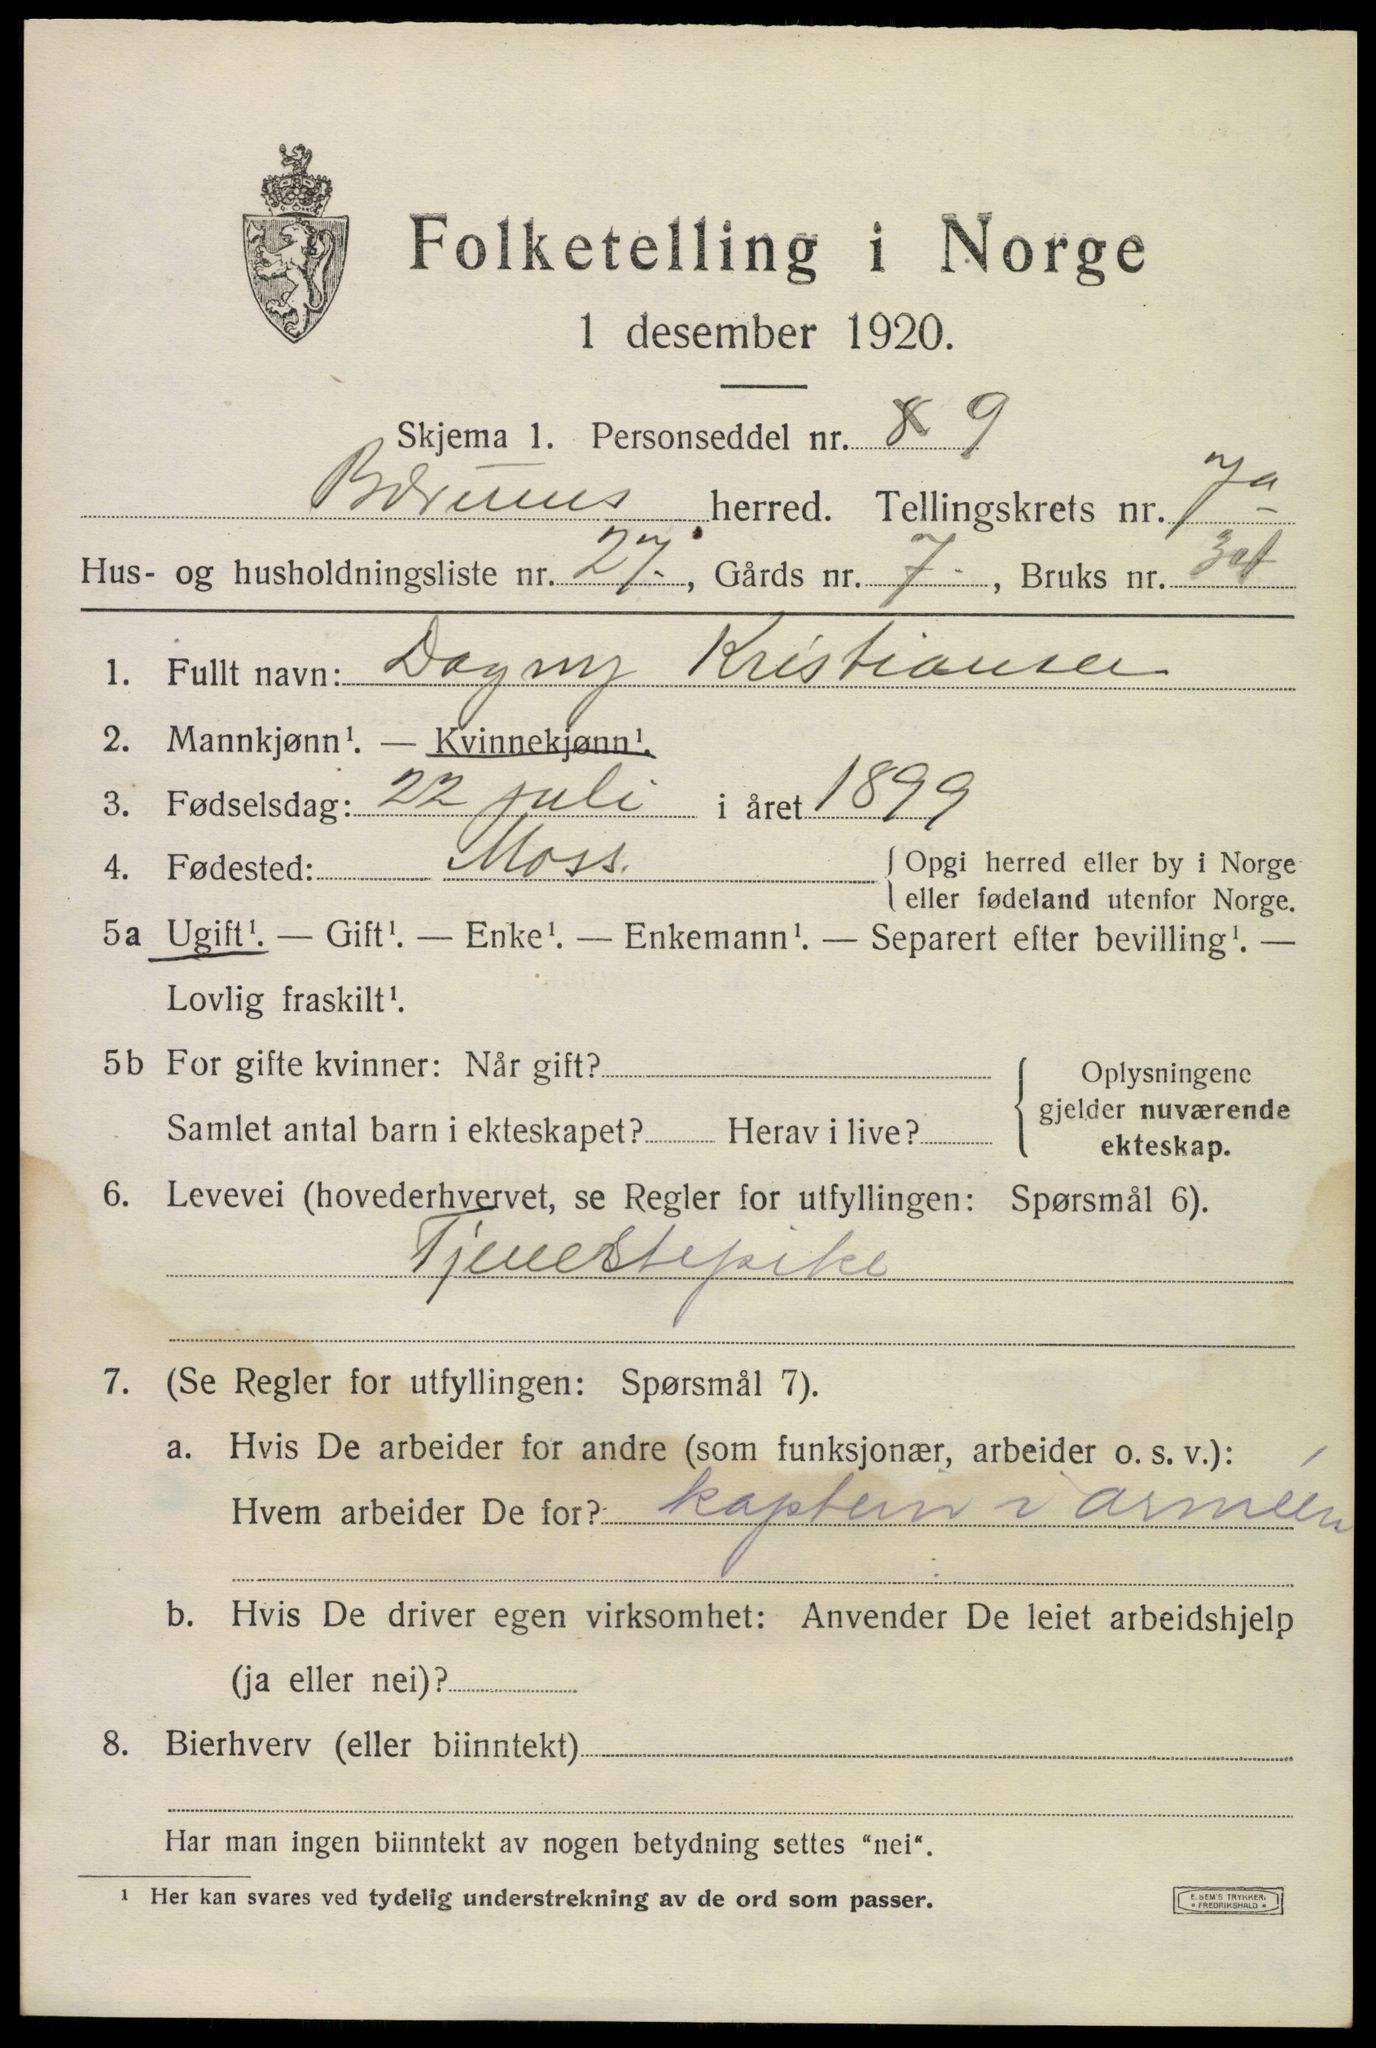 Folketelling i Norge
1 desember 1920.
Skjema 1. Personseddel nr. 8 9
Bærums herred. Tellingskrets nr. 7a
Hus- og husholdningsliste nr. 27., Gårds nr. 7., Bruks nr.
1. Fullt navn: Dagny Kristiansen
2. Mannkjønn¹. — Kvinnekjønn¹.
3. Fødselsdag: 22 juli i året 1899
4. Fødested: Moss. Opgi herred eller by i Norge
eller fødeland utenfor Norge.
5a Ugift¹. — Gift¹. — Enke¹. — Enkemann¹. — Separert efter bevilling¹. —
Lovlig fraskilt¹.
5b For gifte kvinner: Når gift? Oplysningene
gjelder nuværende
Samlet antal barn i ekteskapet? Herav i live? ekteskap.
6. Levevei (hovederhvervet, se Regler for utfyllingen: Spørsmål 6).
Tjenestepike
7. (Se Regler for utfyllingen: Spørsmål 7).
a. Hvis De arbeider for andre (som funksjonær, arbeider o. s. v.):
Hvem arbeider De for? kaptein i arméen
b. Hvis De driver egen virksomhet: Anvender De leiet arbeidshjelp
(ja eller nei)?
8. Bierhverv (eller biinntekt)
Har man ingen biinntekt av nogen betydning settes "nei".
¹ Her kan svares ved tydelig understrekning av de ord som passer.
E. SEM'S TRYKKERI
* FREDRIKSHALD *